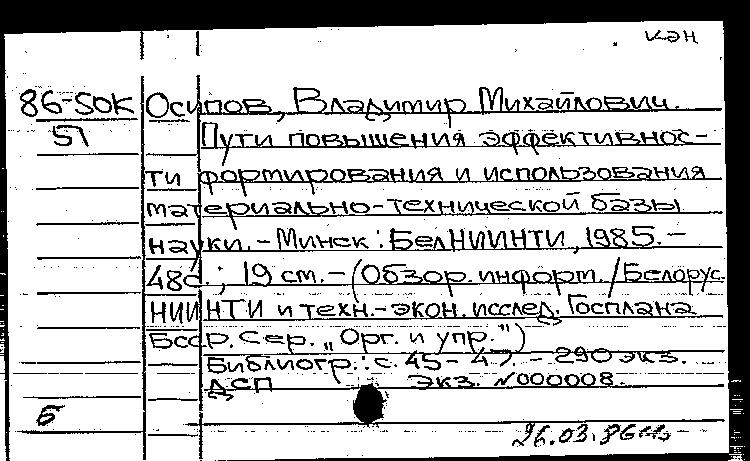 кэн
86-50К Осипов, Владимир Михайлович.
51 Пути повышения эффективнос-
ти формирования и использования
материально-технической базы
науки. - Минск : БелНИИНТИ, 1985. -
48с. ; 19 см. - (Обзор. информ. / Белорус.
НИИНТИ и техн.-экон. исслед. Госплана
БССР. Сер. „Орг. и упр.")
Библиогр.: с. 45-47. - 290 экз.
ДСП экз. №000008.
Б
26.03.86